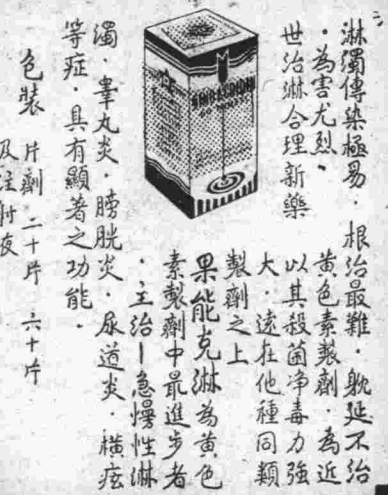 淋濁傳染極易．根治最難．躭延不治
．為害尤烈．黃色素製劑．為近
世治淋合理新藥
以其殺菌淨毒力強
大．遠在他種同類
製劑之上
果能克淋為黃色
素製劑中最進步者
．主治—急慢性淋
濁．睾丸炎．膀胱炎．尿道炎．橫痃
等症．具有顯著之功能．
包裝 片劑 二十片 六十片
及注射液